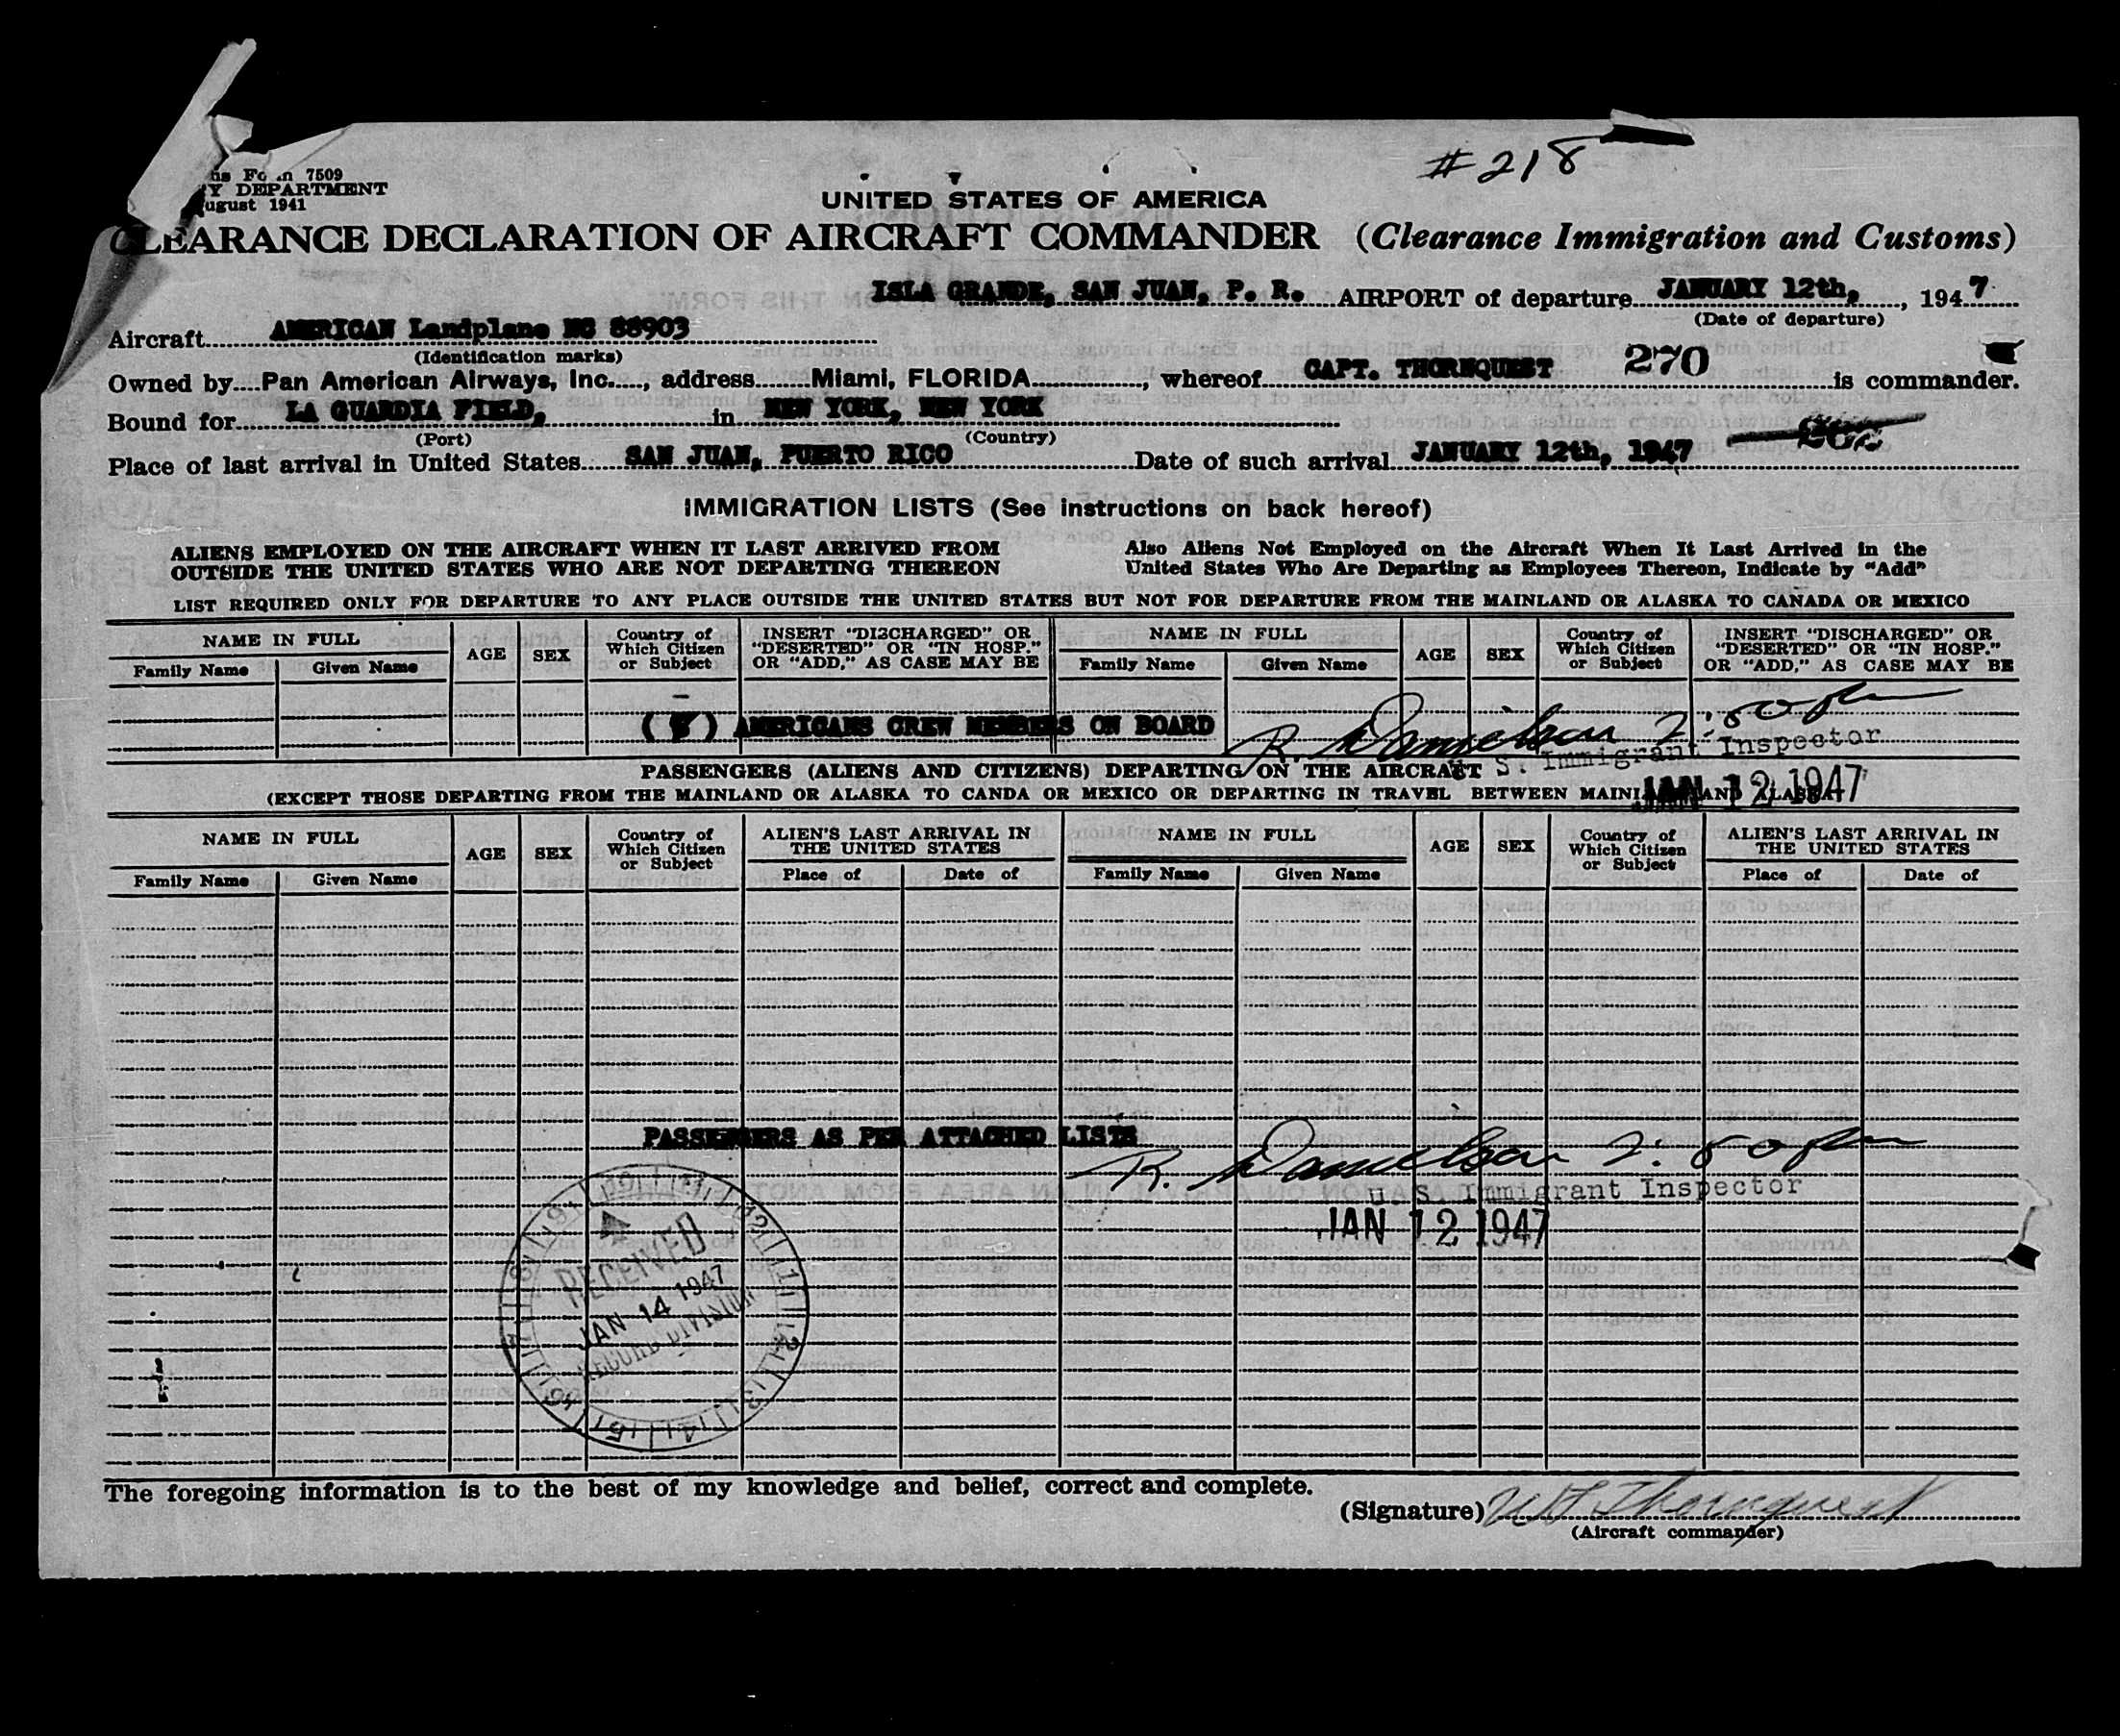 #218
Form 7509
Y DEPARTMENT
ugust 1941
UNITED STATES OF AMERICA
CLEARANCE DECLARATION OF AIRCRAFT COMMANDER (Clearance Immigration and Customs)
ISLA GRANDE, SAN JUAN, P. R. AIRPORT of departure JANUARY 12th, , 1947
(Date of departure)
Aircraft AMERICAN Landplane NC 88903
(Identification marks)
Owned by Pan American Airways, Inc. , address Miami, FLORIDA , whereof CAPT. THORNQUEST 270 is commander.
Bound for LA GUARDIA FIELD, in NEW YORK, NEW YORK
(Port) (Country)
Place of last arrival in United States SAN JUAN, PUERTO RICO Date of such arrival JANUARY 12th, 1947
IMMIGRATION LISTS (See instructions on back hereof)
ALIENS EMPLOYED ON THE AIRCRAFT WHEN IT LAST ARRIVED FROM
OUTSIDE THE UNITED STATES WHO ARE NOT DEPARTING THEREON
Also Aliens Not Employed on the Aircraft When It Last Arrived in the
United States Who Are Departing as Employees Thereon, Indicate by "Add"
LIST REQUIRED ONLY FOR DEPARTURE TO ANY PLACE OUTSIDE THE UNITED STATES BUT NOT FOR DEPARTURE FROM THE MAINLAND OR ALASKA TO CANADA OR MEXICO
NAME IN FULL
Family Name Given Name
AGE
SEX
Country of
Which Citizen
or Subject
INSERT "DISCHARGED" OR
"DESERTED" OR "IN HOSP."
OR "ADD," AS CASE MAY BE
NAME IN FULL
Family Name Given Name
AGE
SEX
Country of
Which Citizen
or Subject
INSERT "DISCHARGED" OR
"DESERTED" OR "IN HOSP."
OR "ADD," AS CASE MAY BE
AMERICANS CREW MEMBERS ON BOARD
R. Danielson 2:50 pm
S. Immigrant Inspector
JAN 12 1947
PASSENGERS (ALIENS AND CITIZENS) DEPARTING ON THE AIRCRAFT
(EXCEPT THOSE DEPARTING FROM THE MAINLAND OR ALASKA TO CANDA OR MEXICO OR DEPARTING IN TRAVEL BETWEEN MAINLAND AND ALASKA)
NAME IN FULL
Family Name Given Name
AGE
SEX
Country of
Which Citizen
or Subject
ALIEN'S LAST ARRIVAL IN
THE UNITED STATES
Place of Date of
NAME IN FULL
Family Name Given Name
AGE
SEX
Country of
Which Citizen
or Subject
ALIEN'S LAST ARRIVAL IN
THE UNITED STATES
Place of Date of
PASSENGERS AS PER ATTACHED LISTS
R. Danielson 2:50 pm
U S. Immigrant Inspector
JAN 12 1947
RECEIVED
JAN 14 1947
RECORD DIVISION
The foregoing information is to the best of my knowledge and belief, correct and complete.
(Signature) W Thornquest
(Aircraft commander)